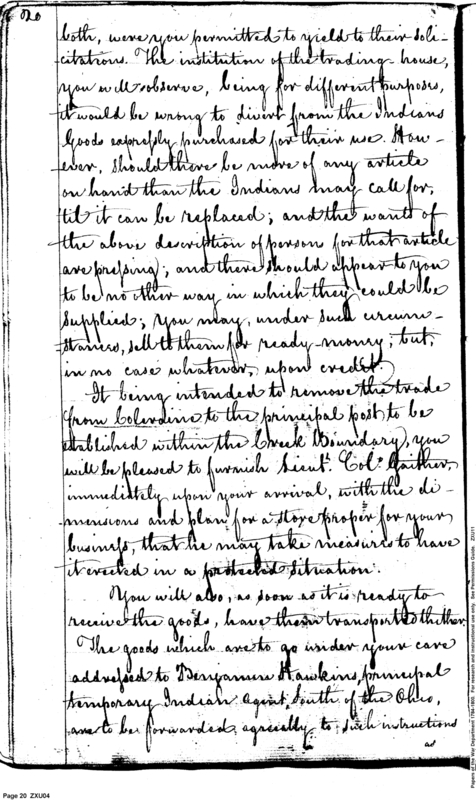 20
both, were you permitted to yield to their soli-
-citations. The institution of the trading house,
you will observe, being for different purposes,
it would be wrong to divert from the Indians
Goods expressly purchased for their use. How-
-ever, should there be more of any article
on hand than the Indians may call for,
til it can be replaced; and the wants of
the above description of person for that article
are pressing; and there should appear to you
to be no other way in which they could be
supplied; you may, under such circum-
-stances, sell to them for ready-money; but,
in no case whatever, upon credit.
It being intended to remove the trade
from Coleraine to the principal post to be
established within the Creek Boundary, you
will be pleased to furnish Lieut. Col. Gaither,
immediately upon your arrival, with the di-
-mensions and plan for a store proper for your
business, that he may take measures to have
it erected in a protected situation.
You will also, as soon as it is ready to
receive the goods, have them transported thither.
The goods which are to go under your care
addressed to Benjamin Hawkins, principal
temporary Indian agent, South of the Ohio,
are to be forwarded agreeably to such instructions
as
Page 20 ZXU04
Papers of the War Department 1784-1800. For research and instructional use only. See Permissions Guide. ZXU11